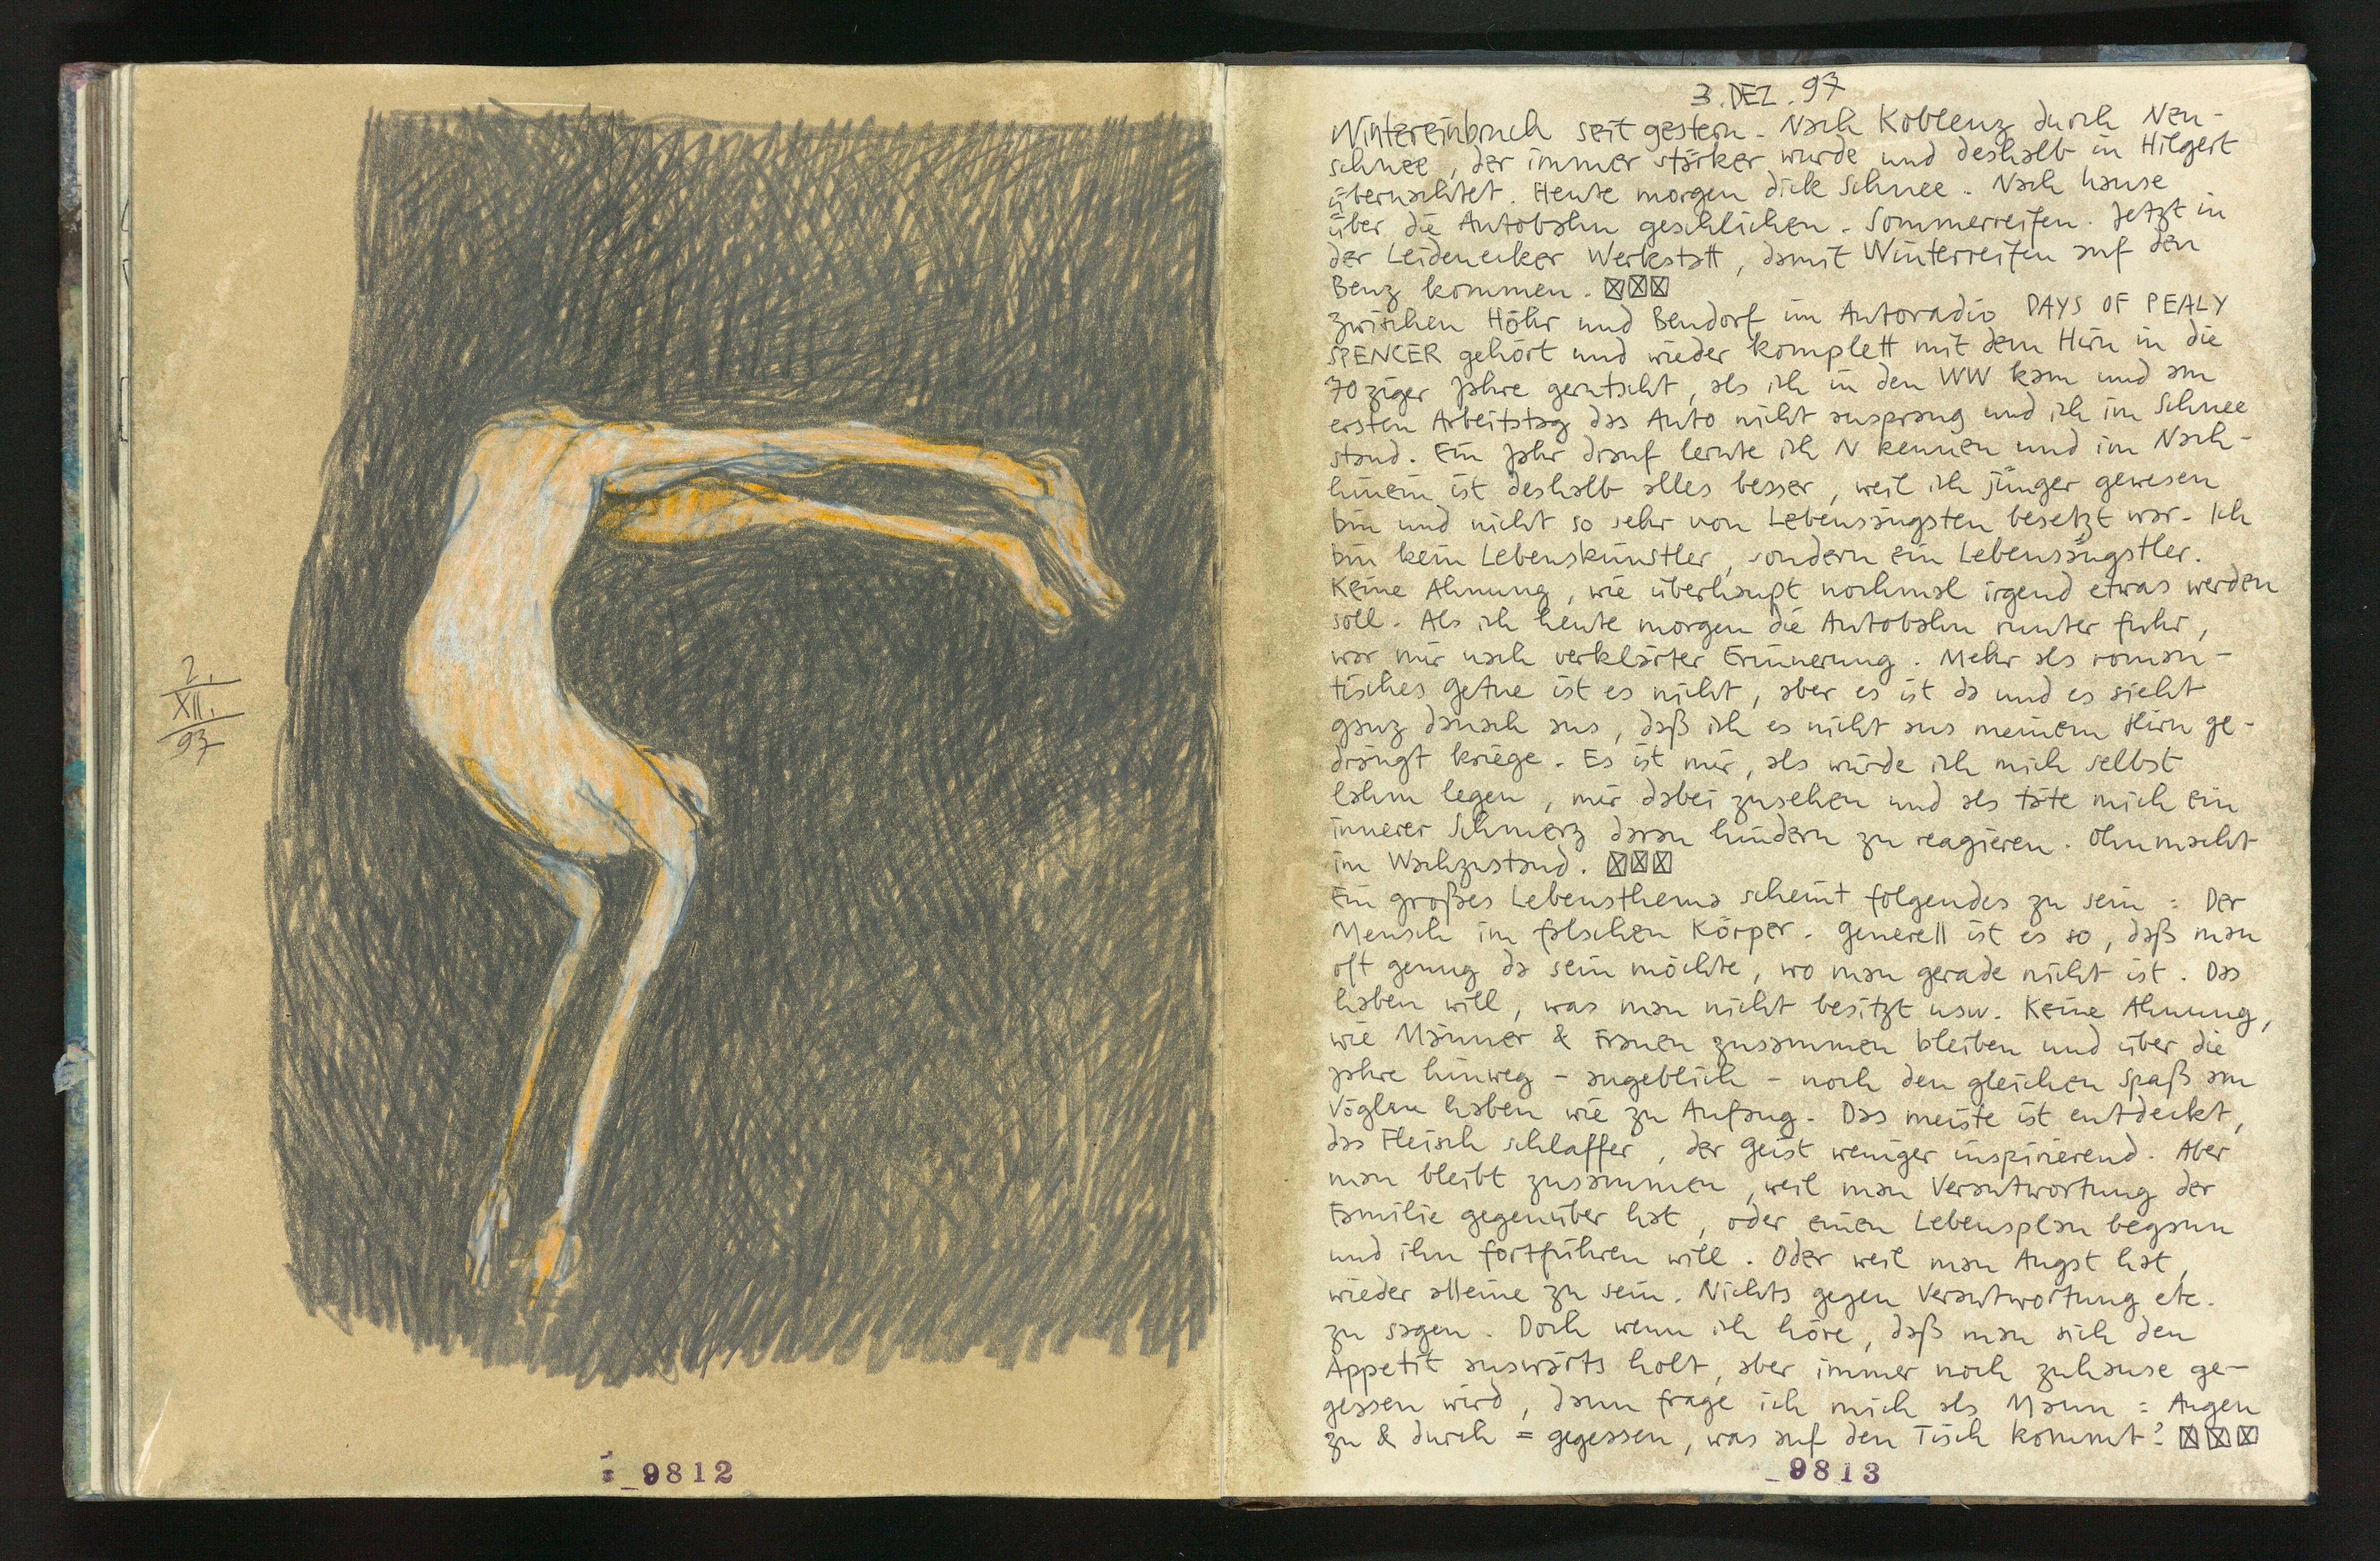 2.
XII.
97
9812
3. DEZ. 97
Wintereinbruch seit gestern. Nach Koblenz durch Neu-
schnee, der immer stärker wurde und deshalb in Hilgert
übernachtet. Heute morgen dick Schnee. Nach hause
über die Autobahn geschlichen. Sommerreifen. Jetzt in
der Leidenecker Werkstatt, damit Winterreifen auf den
Benz kommen. ☒☒☒
zwischen Höhr und Bendorf im Autoradio DAYS OF PEALY
SPENCER gehört und wieder komplett mit dem Hirn in die
70ziger Jahre gerutscht, als ich in den WW kam und am
ersten Arbeitstag das Auto nicht ansprang und ich im Schnee
stand. Ein Jahr drauf lernte ich N kennen und im Nach-
hinein ist deshalb alles besser, weil ich jünger gewesen
bin und nicht so sehr von Lebensängsten besetzt war. Ich
bin kein Lebenskünstler, sondern ein Lebensängstler.
Keine Ahnung, wie überhaupt nochmal irgend etwas werden
soll. Als ich heute morgen die Autobahn runter fuhr,
war mir nach verklärter Erinnerung. Mehr als roman-
tisches Getue ist es nicht, aber es ist da und es sieht
ganz danach aus, daß ich es nicht aus meinem Hirn ge-
drängt kriege. Es ist mir, als würde ich mich selbst
lahm legen, mir dabei zusehen und als täte mich ein
innerer Schmerz daran hindern zu reagieren. Ohnmacht
im Wachzustand. ☒☒☒
Ein großes Lebensthema scheint folgendes zu sein: Der
Mensch im falschen Körper. Generell ist es so, daß man
oft genug da sein möchte, wo man gerade nicht ist. Das
haben will, was man nicht besitzt usw. Keine Ahnung,
wie Männer & Frauen zusammen bleiben und über die
Jahre hinweg - angeblich - noch den gleichen Spaß am
Vögeln haben wie zu Anfang. Das meiste ist entdeckt,
das Fleisch schlaffer, der Geist weniger inspirierend. Aber
man bleibt zusammen, weil man Verantwortung der
Familie gegenüber hat, oder einen Lebensplan begann
und ihn fortführen will. Oder weil man Angst hat,
wieder alleine zu sein. Nichts gegen Verantwortung etc.
zu sagen. Doch wenn ich höre, daß man sich den
Appetit auswärts holt, aber immer noch zuhause ge-
gessen wird, dann frage ich mich als Mann: Augen
zu & durch = gegessen, was auf den Tisch kommt? ☒☒☒
9813